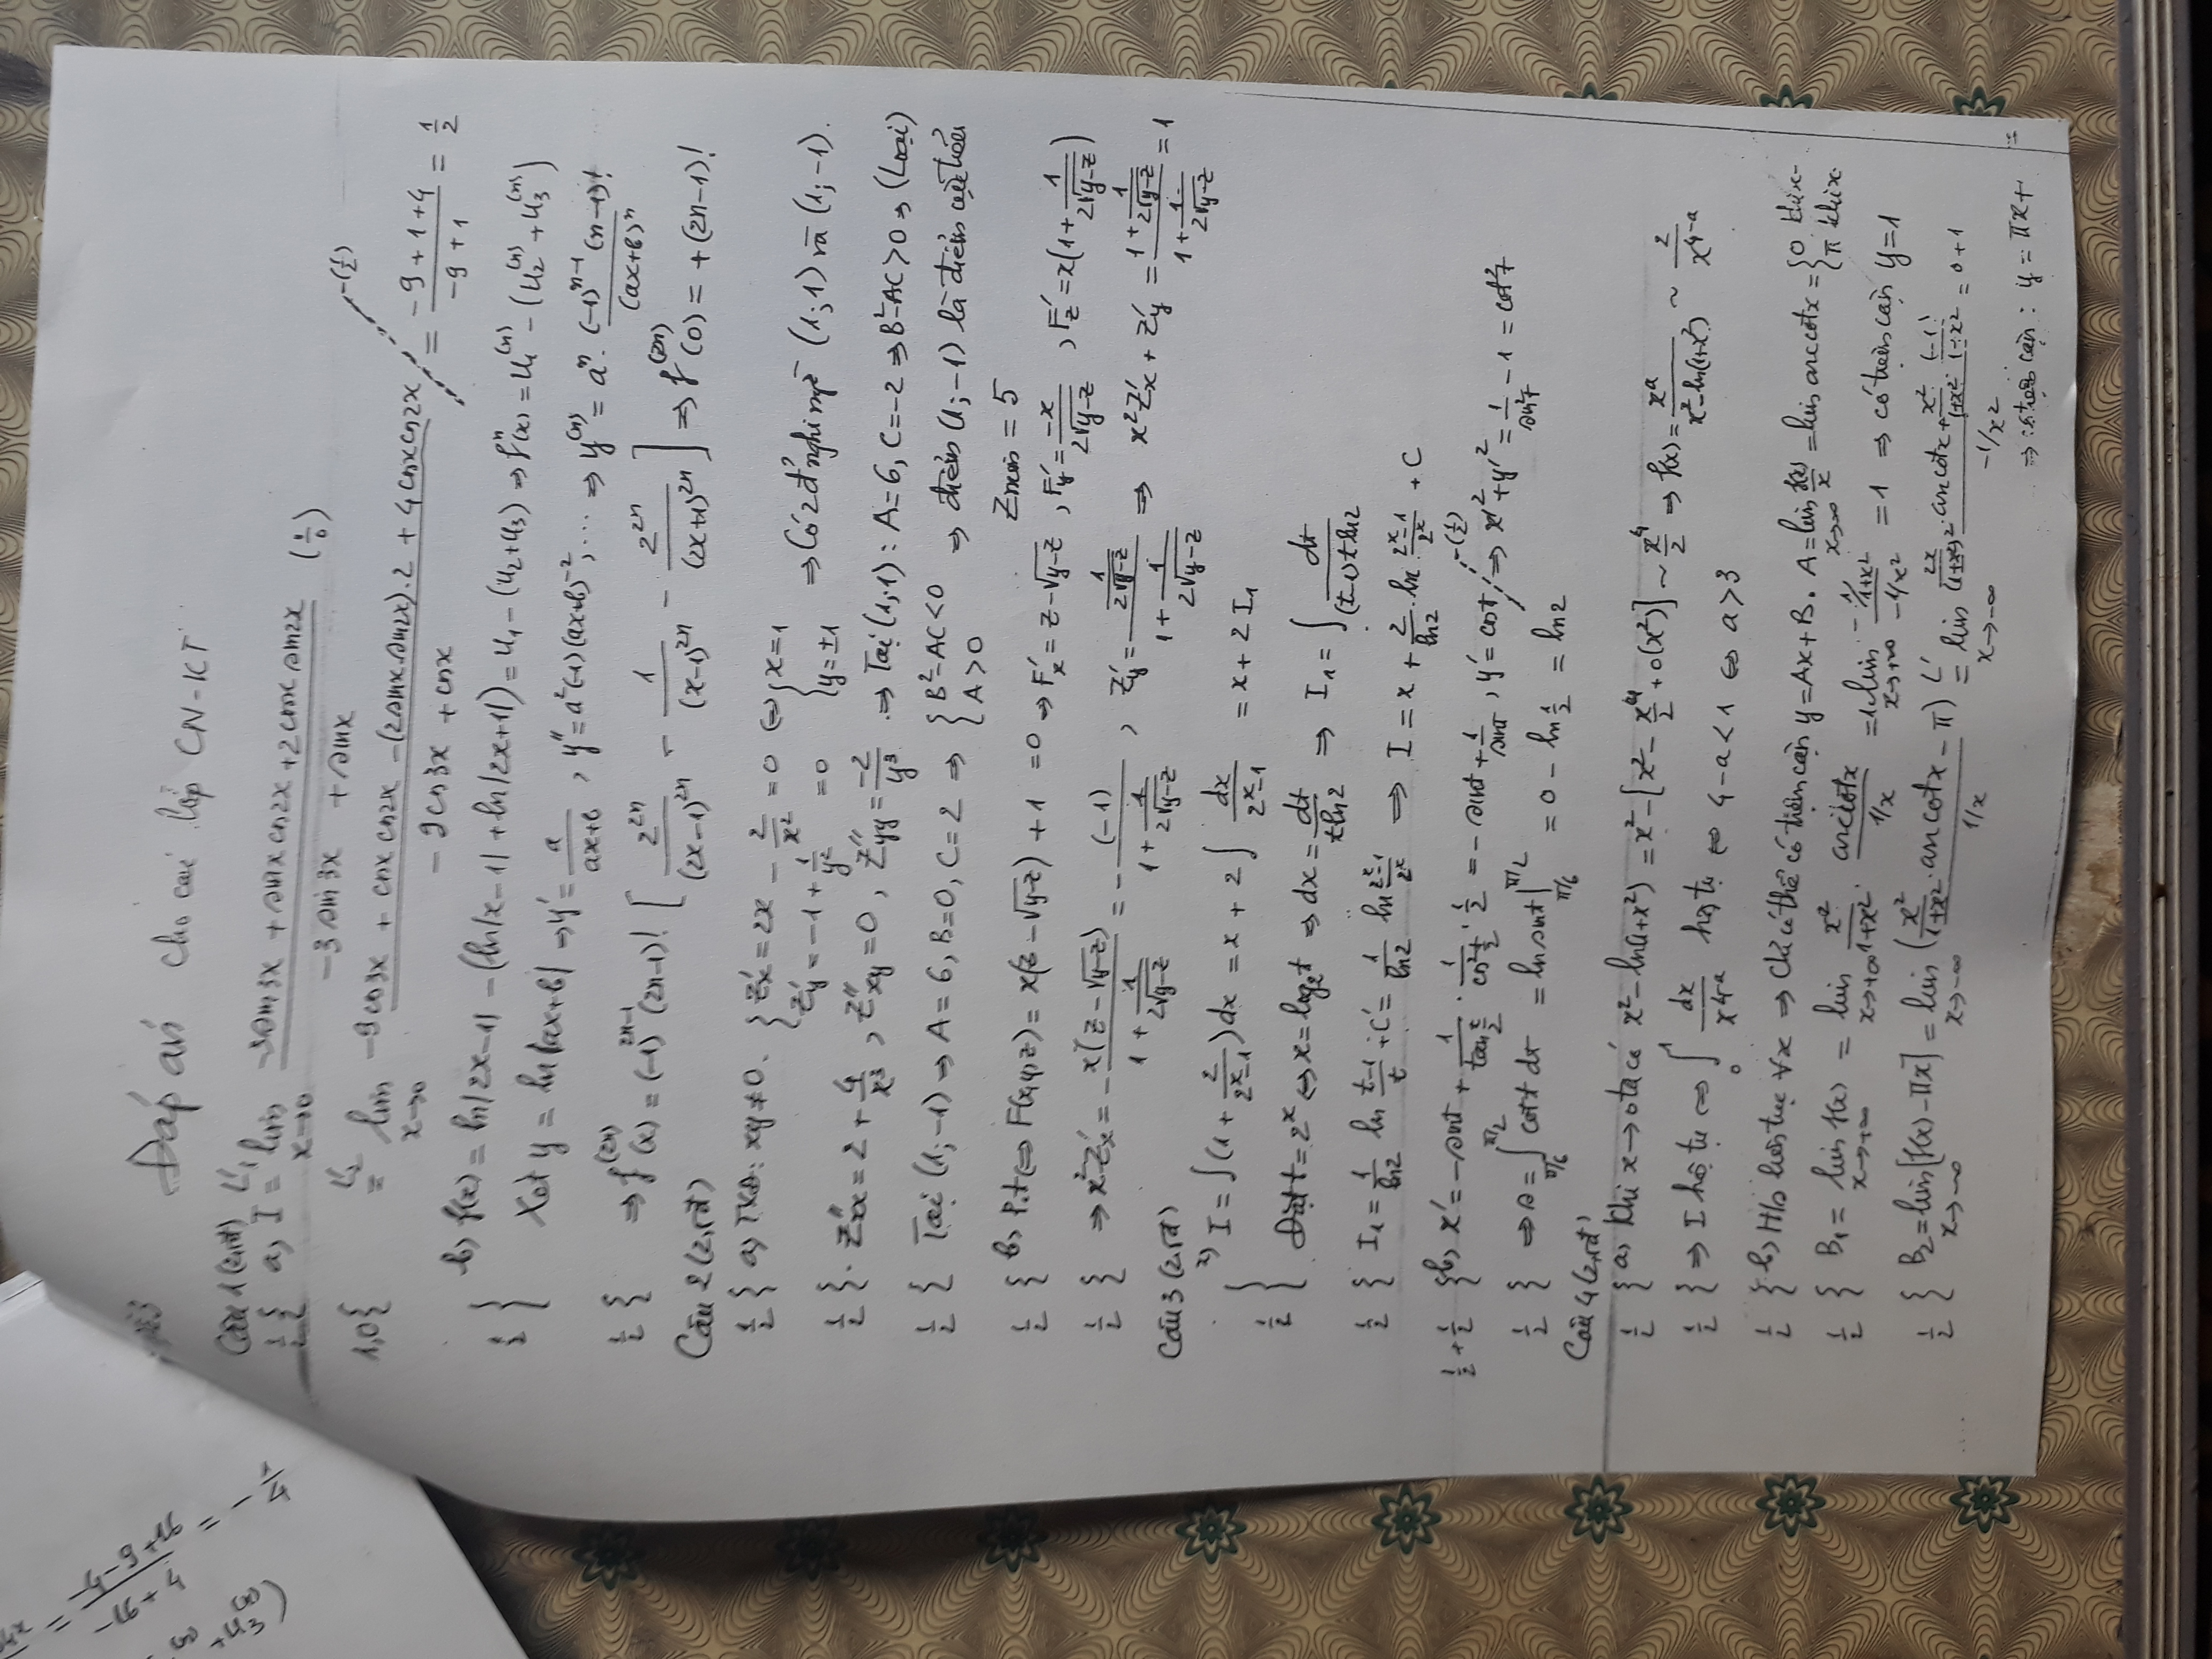 Đáp án cho các lớp CN-KT
Câu 1 (2,5đ)
½ { a) I =^{L'_1} lim_{x→0} (-3sin3x + sinx cos2x + 2cosx sin2x)/(-3sin3x + sinx) (0/0)
1,0 { =^{L'_2} lim_{x→0} (-9cos3x + cosx cos2x - (2sinx.sin2x).2 + 4cosxcos2x)/(-9cos3x + cosx) -(½) = (-9+1+4)/(-9+1) = 1/2
½ { b) f(x) = ln|2x-1| - (ln|x-1| + ln|2x+1|) = u₁ - (u₂+u₃) ⇒ fⁿ(x) = u₁^{(n)} - (u₂^{(n)} + u₃^{(n)})
Xét y = ln|ax+b| ⇒ y' = a/(ax+b), y'' = a²(-1)(ax+b)⁻², ... ⇒ y^{(n)} = aⁿ. (-1)^{n-1}(n-1)!/(ax+b)ⁿ
½ { ⇒ f^{(2n)}(x) = (-1)^{2n-1}(2n-1)! [2^{2n}/(2x-1)^{2n} - 1/(x-1)^{2n} - 2^{2n}/(2x+1)^{2n}] ⇒ f^{(2n)}(0) = +(2n-1)!
Câu 2 (2,5đ)
½ { a) TXĐ: xy≠0. { z'x = 2x - 2/x² = 0 ⇔ { x=1
z'y = -1 + 1/y² = 0 y=±1 ⇒ Có 2 đ' nghi ngờ (1;1) và (1;-1).
½ { . z''xx = 2 + 4/x³, z''xy = 0, z''yy = -2/y³ ⇒ Tại (1;1): A=6, C=-2 ⇒ B²-AC>0 ⇒ (Loại)
½ { Tại (1;-1) ⇒ A=6, B=0, C=2 ⇒ { B²-AC<0 A>0 ⇒ điểm (1;-1) là điểm cực tiểu
Zmin = 5
½ { b) P.t ⇔ F(x,y,z) = x(z - √(y-z)) + 1 = 0 ⇒ F'x = z - √(y-z), F'y = -x/(2√(y-z)), F'z = x(1 + 1/(2√(y-z)))
½ { ⇒ x²z'x = -x(z - √(y-z))/(1 + 1/(2√(y-z))) = -(-1)/(1 + 1/(2√(y-z))), z'y = (1/(2√(y-z)))/(1 + 1/(2√(y-z))) ⇒ x²z'x + z'y = (1 + 1/(2√(y-z)))/(1 + 1/(2√(y-z))) = 1
Câu 3 (2,5đ)
½ { a) I = ∫(1 + 2/(2ˣ-1))dx = x + 2∫ dx/(2ˣ-1) = x + 2I₁
Đặt t = 2ˣ ⇔ x = log₂t ⇒ dx = dt/(tln2) ⇒ I₁ = ∫ dt/((t-1)tln2)
½ { I₁ = 1/ln2 ln (t-1)/t + C' = 1/ln2 ln (2ˣ-1)/2ˣ ⇒ I = x + 2/ln2 . ln (2ˣ-1)/2ˣ + C
½+½ { b) x' = -sint + 1/tan(t/2) . 1/cos²(t/2) . 1/2 = -sint + 1/sint, y' = cost -(½) ⇒ x'² + y'² = 1/sin²t - 1 = cot²t
½ { ⇒ s = ∫_{π/6}^{π/2} cott dt = ln sint |_{π/6}^{π/2} = 0 - ln ½ = ln2
Câu 4 (2,5đ)
½ { a) Khi x→0 ta có x² - ln(1+x²) = x² - [x² - x⁴/2 + o(x²)] ~ x⁴/2 ⇒ f(x) = xᵃ/(x²-ln(1+x²)) ~ 2/x^{4-a}
½ { ⇒ I hội tụ ⇔ ∫₀¹ dx/x^{4-a} hội tụ ⇔ 4-a<1 ⇔ a>3
½ { b) H/s liên tục ∀x ⇒ Chỉ có thể có tiệm cận y = Ax+B. A = lim_{x→∞} f(x)/x = lim arccotx = { 0 khi x- π khi x-
½ { B₁ = lim_{x→+∞} f(x) = lim_{x→+∞} x²/(1+x²) . arccotx/(1/x) = 1.lim_{x→+∞} (-1/(1+x²))/(-1/x²) = 1 ⇒ có tiệm cận y=1
½ { B₂ = lim_{x→-∞} [f(x)-πx] = lim_{x→-∞} (x²/(1+x²) . arccotx - π)/(1/x) =^{L'} lim_{x→-∞} (2x/(1+x²)² . arccotx + x²/(1+x²) . (-1)/(1+x²))/(-1/x²) = 0+1
⇒ có tiệm cận: y = πx+